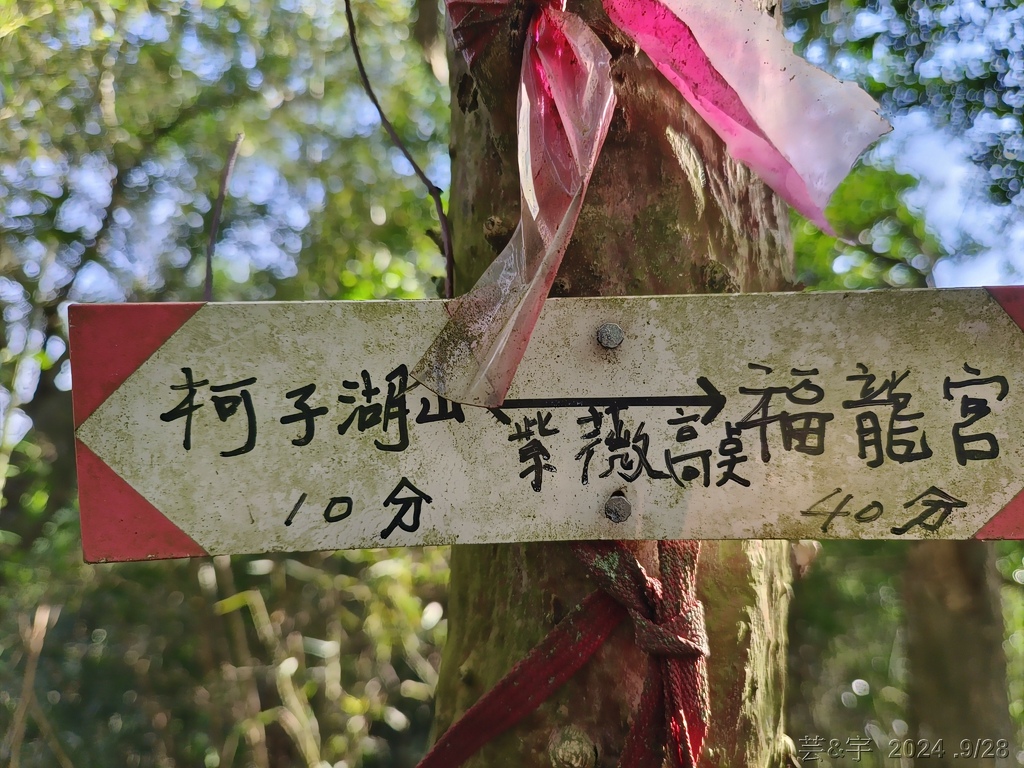 柯子湖山 福龍宮
紫薇高點
10分 40分
芸&宇 2024 .9/28